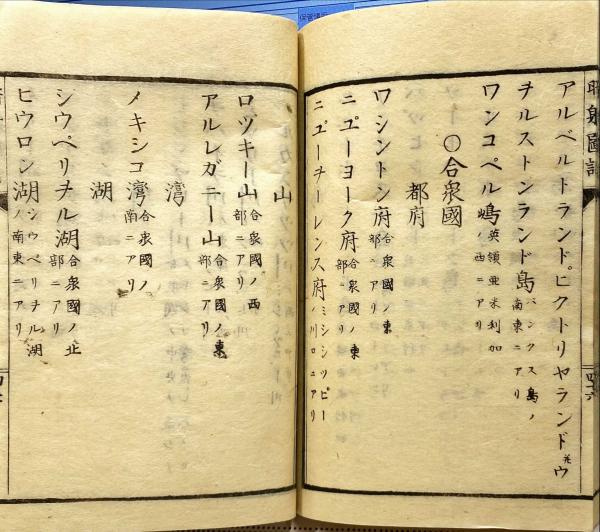 アルベルトランド。ビクトリヤランド 尤ウ
ヲルストンランド島 バンクス島ノ
南東ニアリ
ワンコペル嶋 英領亜米利加
ノ西ニアリ
○合衆國
都府
ワシントン府 合衆國ノ東
部ニアリ
ニューヨーク府 合衆國ノ東
部ニアリ
ニューヲーレンス府 ミシシッピー
ノ川口ニアリ
山
ロッキー山 合衆國ノ西
部ニアリ
アルレガニー山 合衆國ノ東
部ニアリ
湾
メキシコ湾 合衆國ノ
南ニアリ
湖
シウペリヲル湖 合衆國ノ北
部ニアリ
ヒウロン湖 シウペリヲル湖
ノ南東ニアリ